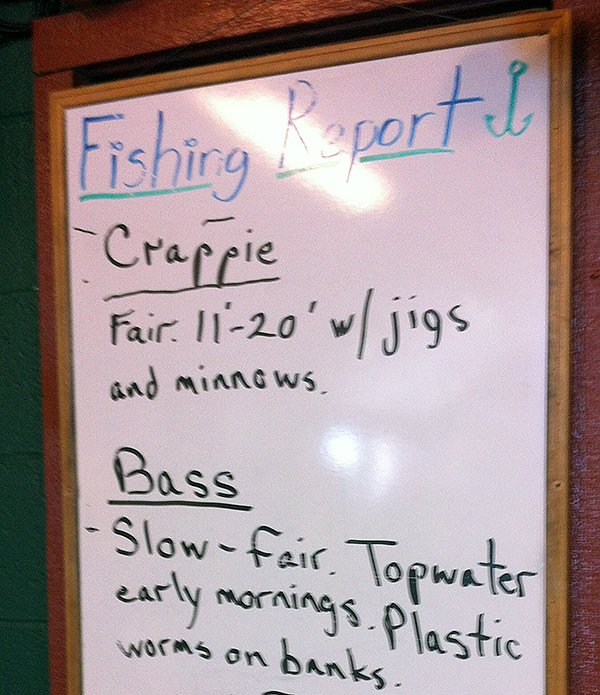 Fishing Report
- Crappie
Fair. 11'-20' w/ jigs
and minnows.
Bass
- Slow-Fair. Topwater
early mornings. Plastic
worms on banks.